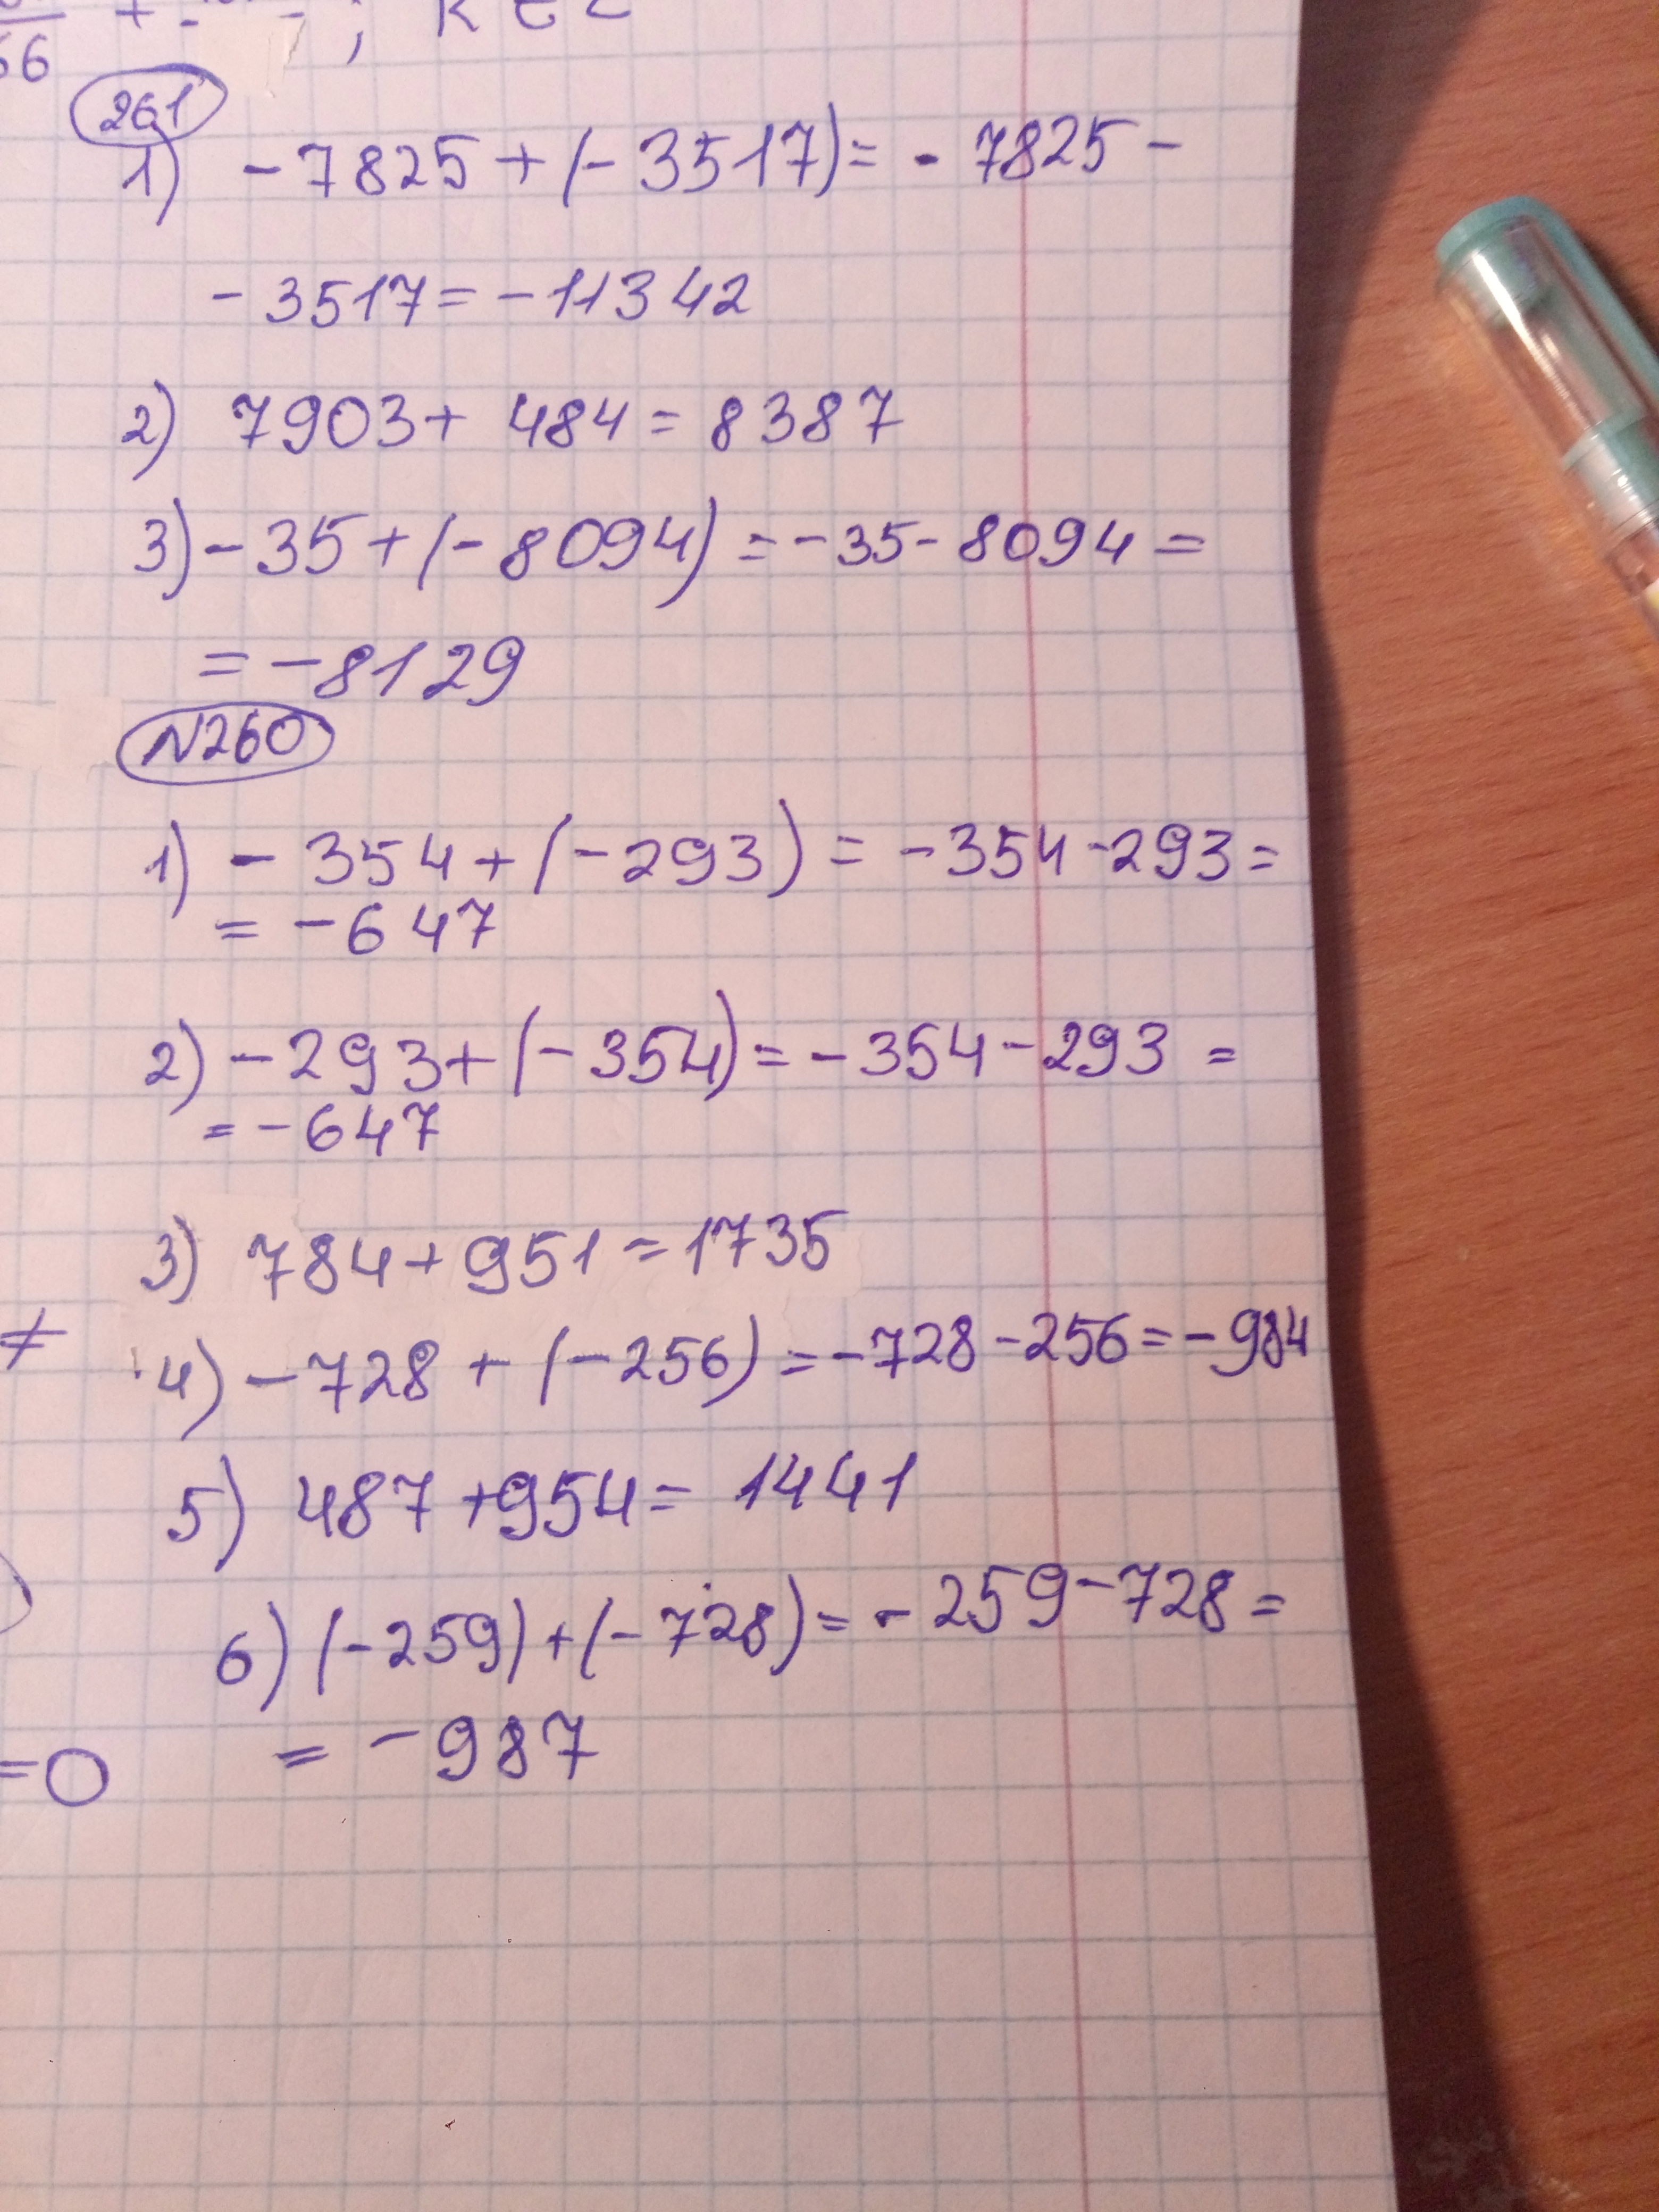 56
261
1) - 7825 + (- 3517) = - 7825 -
- 3517 = - 11342
2) 7903 + 484 = 8387
3) - 35 + (- 8094) = - 35 - 8094 =
= - 8129
N260
1) - 354 + (- 293) = - 354 - 293 =
= - 647
2) - 293 + (- 354) = - 354 - 293 =
= - 647
3) 784 + 951 = 1735
≠
4) - 728 + (- 256) = - 728 - 256 = - 984
5) 487 + 954 = 1441
6) (- 259) + (- 728) = - 259 - 728 =
= - 987
= 0